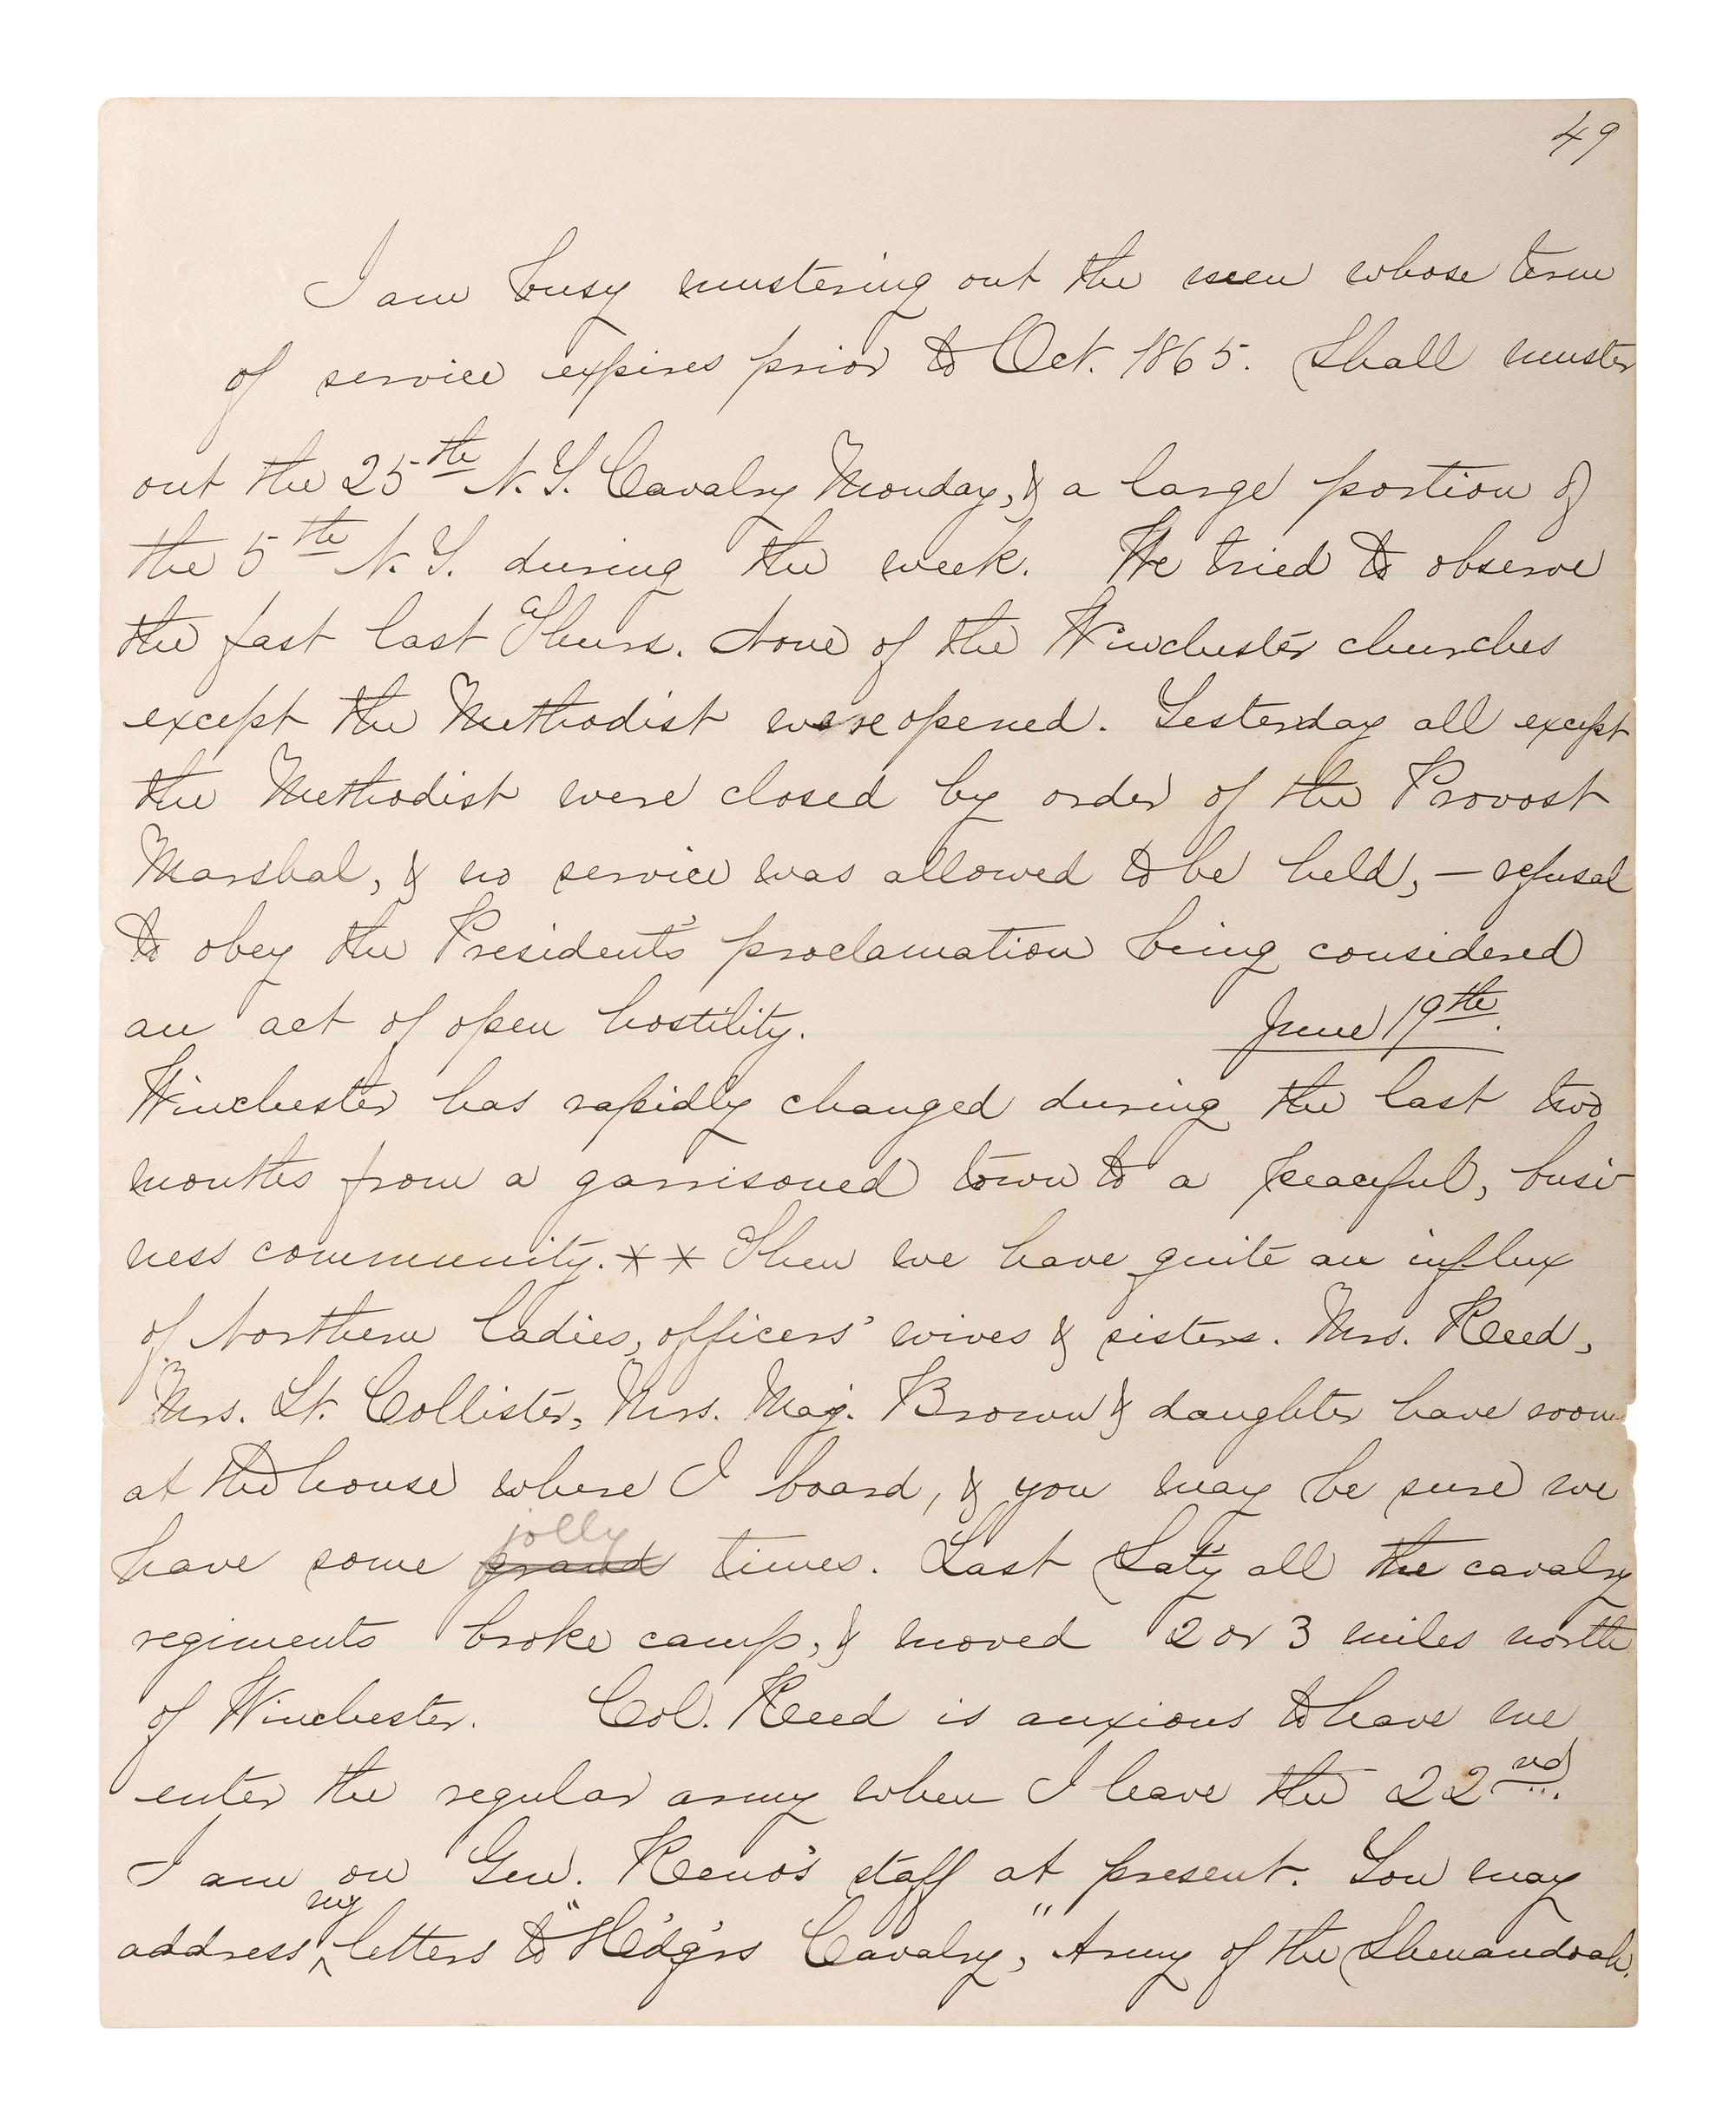 49
I am busy mustering out the men whose term
of service expires prior to Oct. 1865. Shall muster
out the 25th N.Y. Cavalry Monday, & a large portion of
the 5th N.Y. during the week. We tried to observe
the fast last Thurs. None of the Winchester churches
except the Methodist were opened. Yesterday all except
the Methodist were closed by order of the Provost
Marshal, & no service was allowed to be held, — refusal
to obey the President's proclamation being considered
an act of open hostility. June 19th.
Winchester has rapidly changed during the last two
months from a garrisoned town to a peaceful, busi-
ness community. * * Then we have quite an influx
of Northern ladies, officers' wives & sisters. Mrs. Reed,
Mrs. Lt. Collister, Mrs. Maj. Brown & daughter have rooms
at the house where I board, & you may be sure we
have some grand jolly times. Last Sat'y all the cavalry
regiments broke camp, & moved 2 or 3 miles north
of Winchester. Col. Reed is anxious to have me
enter the regular army when I leave the 22nd.
I am on Gen. Reno's staff at present. You may
address my letters to "H'd'q'rs Cavalry," Army of the Shenandoah.